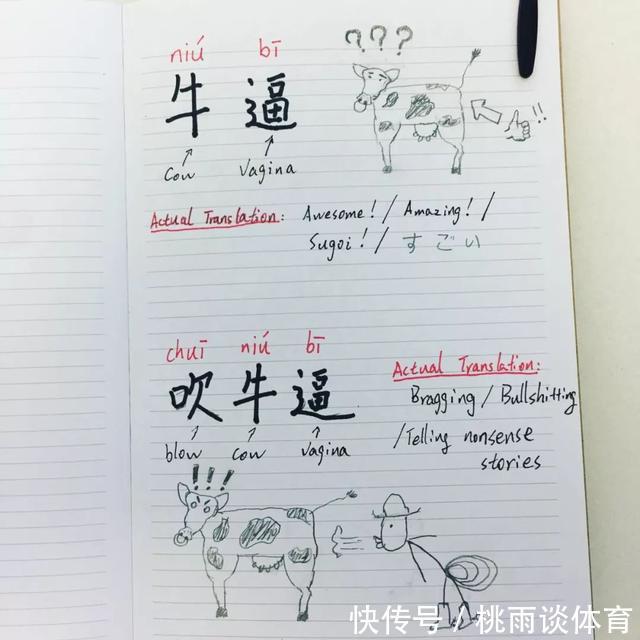 niú bī
???
牛逼
!!
Cow Vagina
Actual Translation: Awesome! / Amazing! /
Sugoi! / すごい
chuī niú bī
吹牛逼
blow cow vagina
Actual Translation:
Bragging / Bullshitting
/Telling nonsense
stories
!!!
快传号 / 桃雨谈体育